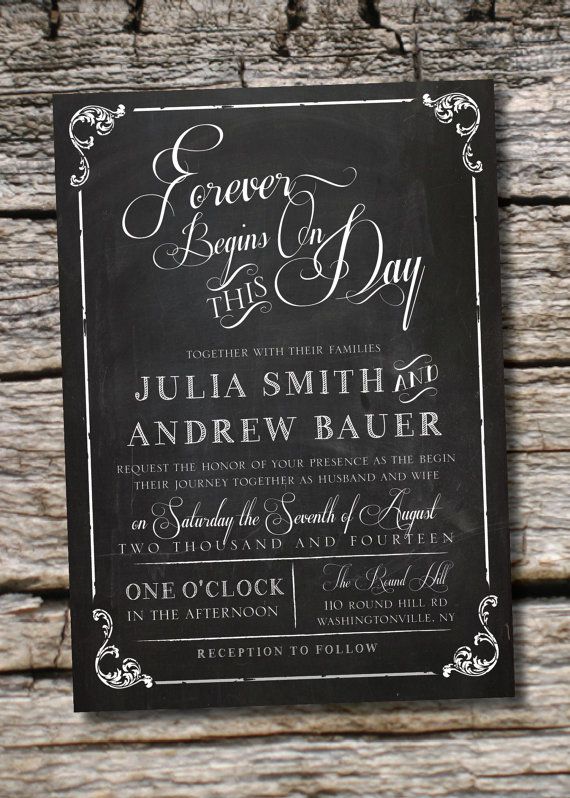 Forever
Begins On
THIS Day
TOGETHER WITH THEIR FAMILIES
JULIA SMITH AND
ANDREW BAUER
REQUEST THE HONOR OF YOUR PRESENCE AS THE BEGIN
THEIR JOURNEY TOGETHER AS HUSBAND AND WIFE
on Saturday the Seventh of August
TWO THOUSAND AND FOURTEEN
ONE O'CLOCK
IN THE AFTERNOON
The Round Hill
110 ROUND HILL RD
WASHINGTONVILLE, NY
RECEPTION TO FOLLOW